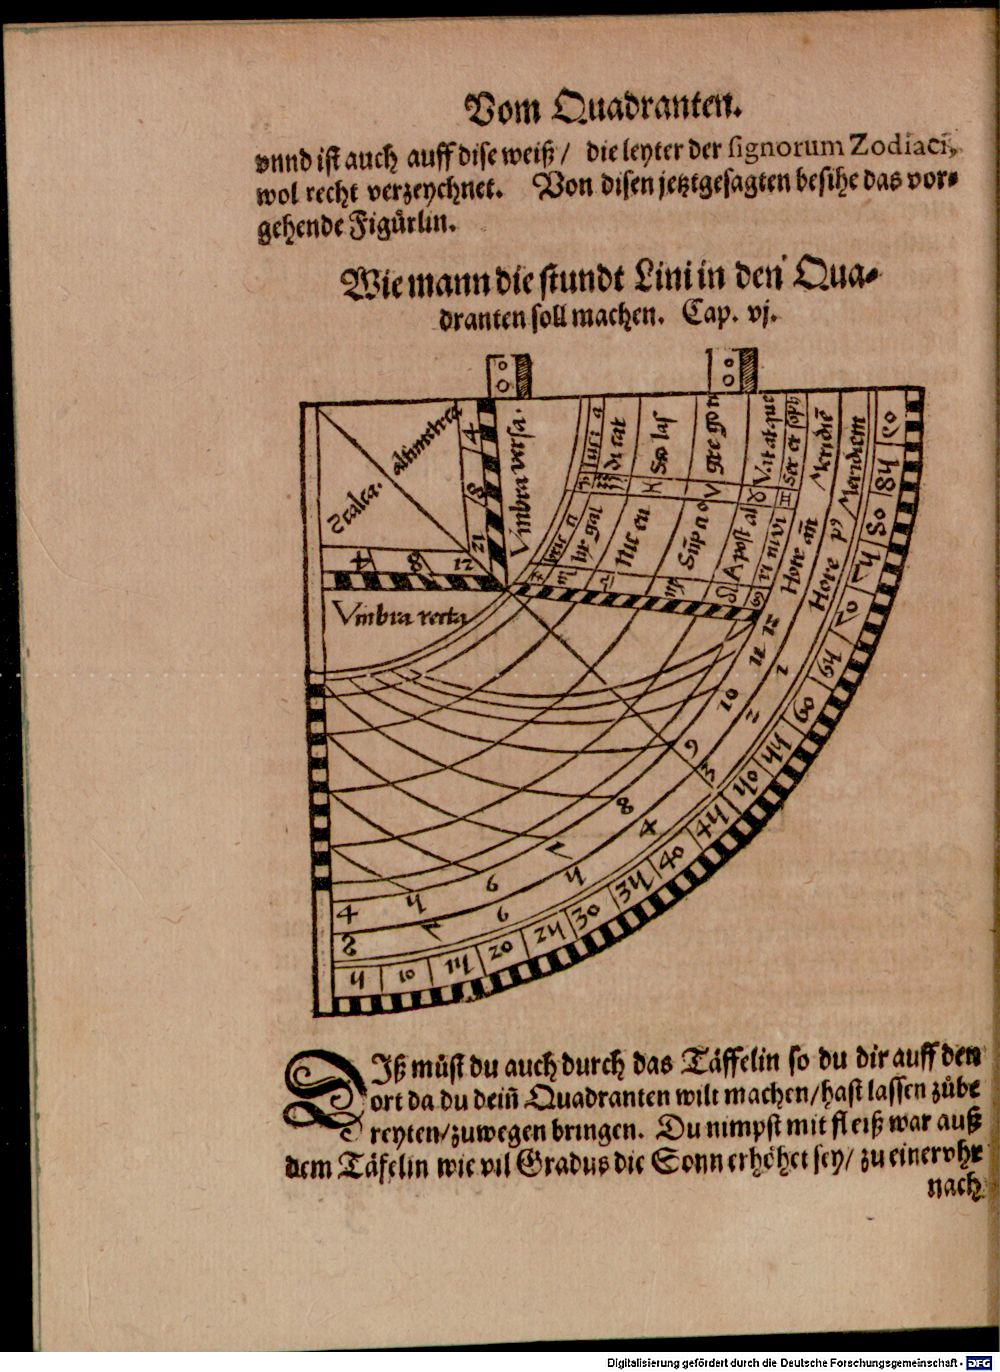 Vom Quadranten.
vnnd ist auch auff dise weiß / die leyter der signorum Zodiaci,
wol recht verzeychnet. Von disen jetztgesagten besihe das vor-
gehende Figürlin.
Wie mann die stundt Lini in den Qua-
dranten soll machen. Cap. vj.
Scalca. altimetrea
4 8 12
4 8 12
Vmbra versa.
Vmbra recta
luci a
di cat
So las
gre gor
Vat at que
Ser et soph
Meridiē
Meridiem
♓ ♉ ♊
Nic en
A post al
Hore añ
Hore p9
12 11 10 9 8 7 6 5 4
1 2 3 4 5 6 7 8
5 10 15 20 25 30 35 40 45 50 55 60 65 70 75 80 85 90
DIß můst du auch durch das Täffelin so du dir auff den
ort da du deiñ Quadranten wilt machen/hast lassen zůbe
reyten/zuwegen bringen. Du nimpst mit fleiß war auß
dem Täfelin wie vil Gradus die Sonn erhöhet sey/ zu einer vhr
nach
Digitalisierung gefördert durch die Deutsche Forschungsgemeinschaft - DFG